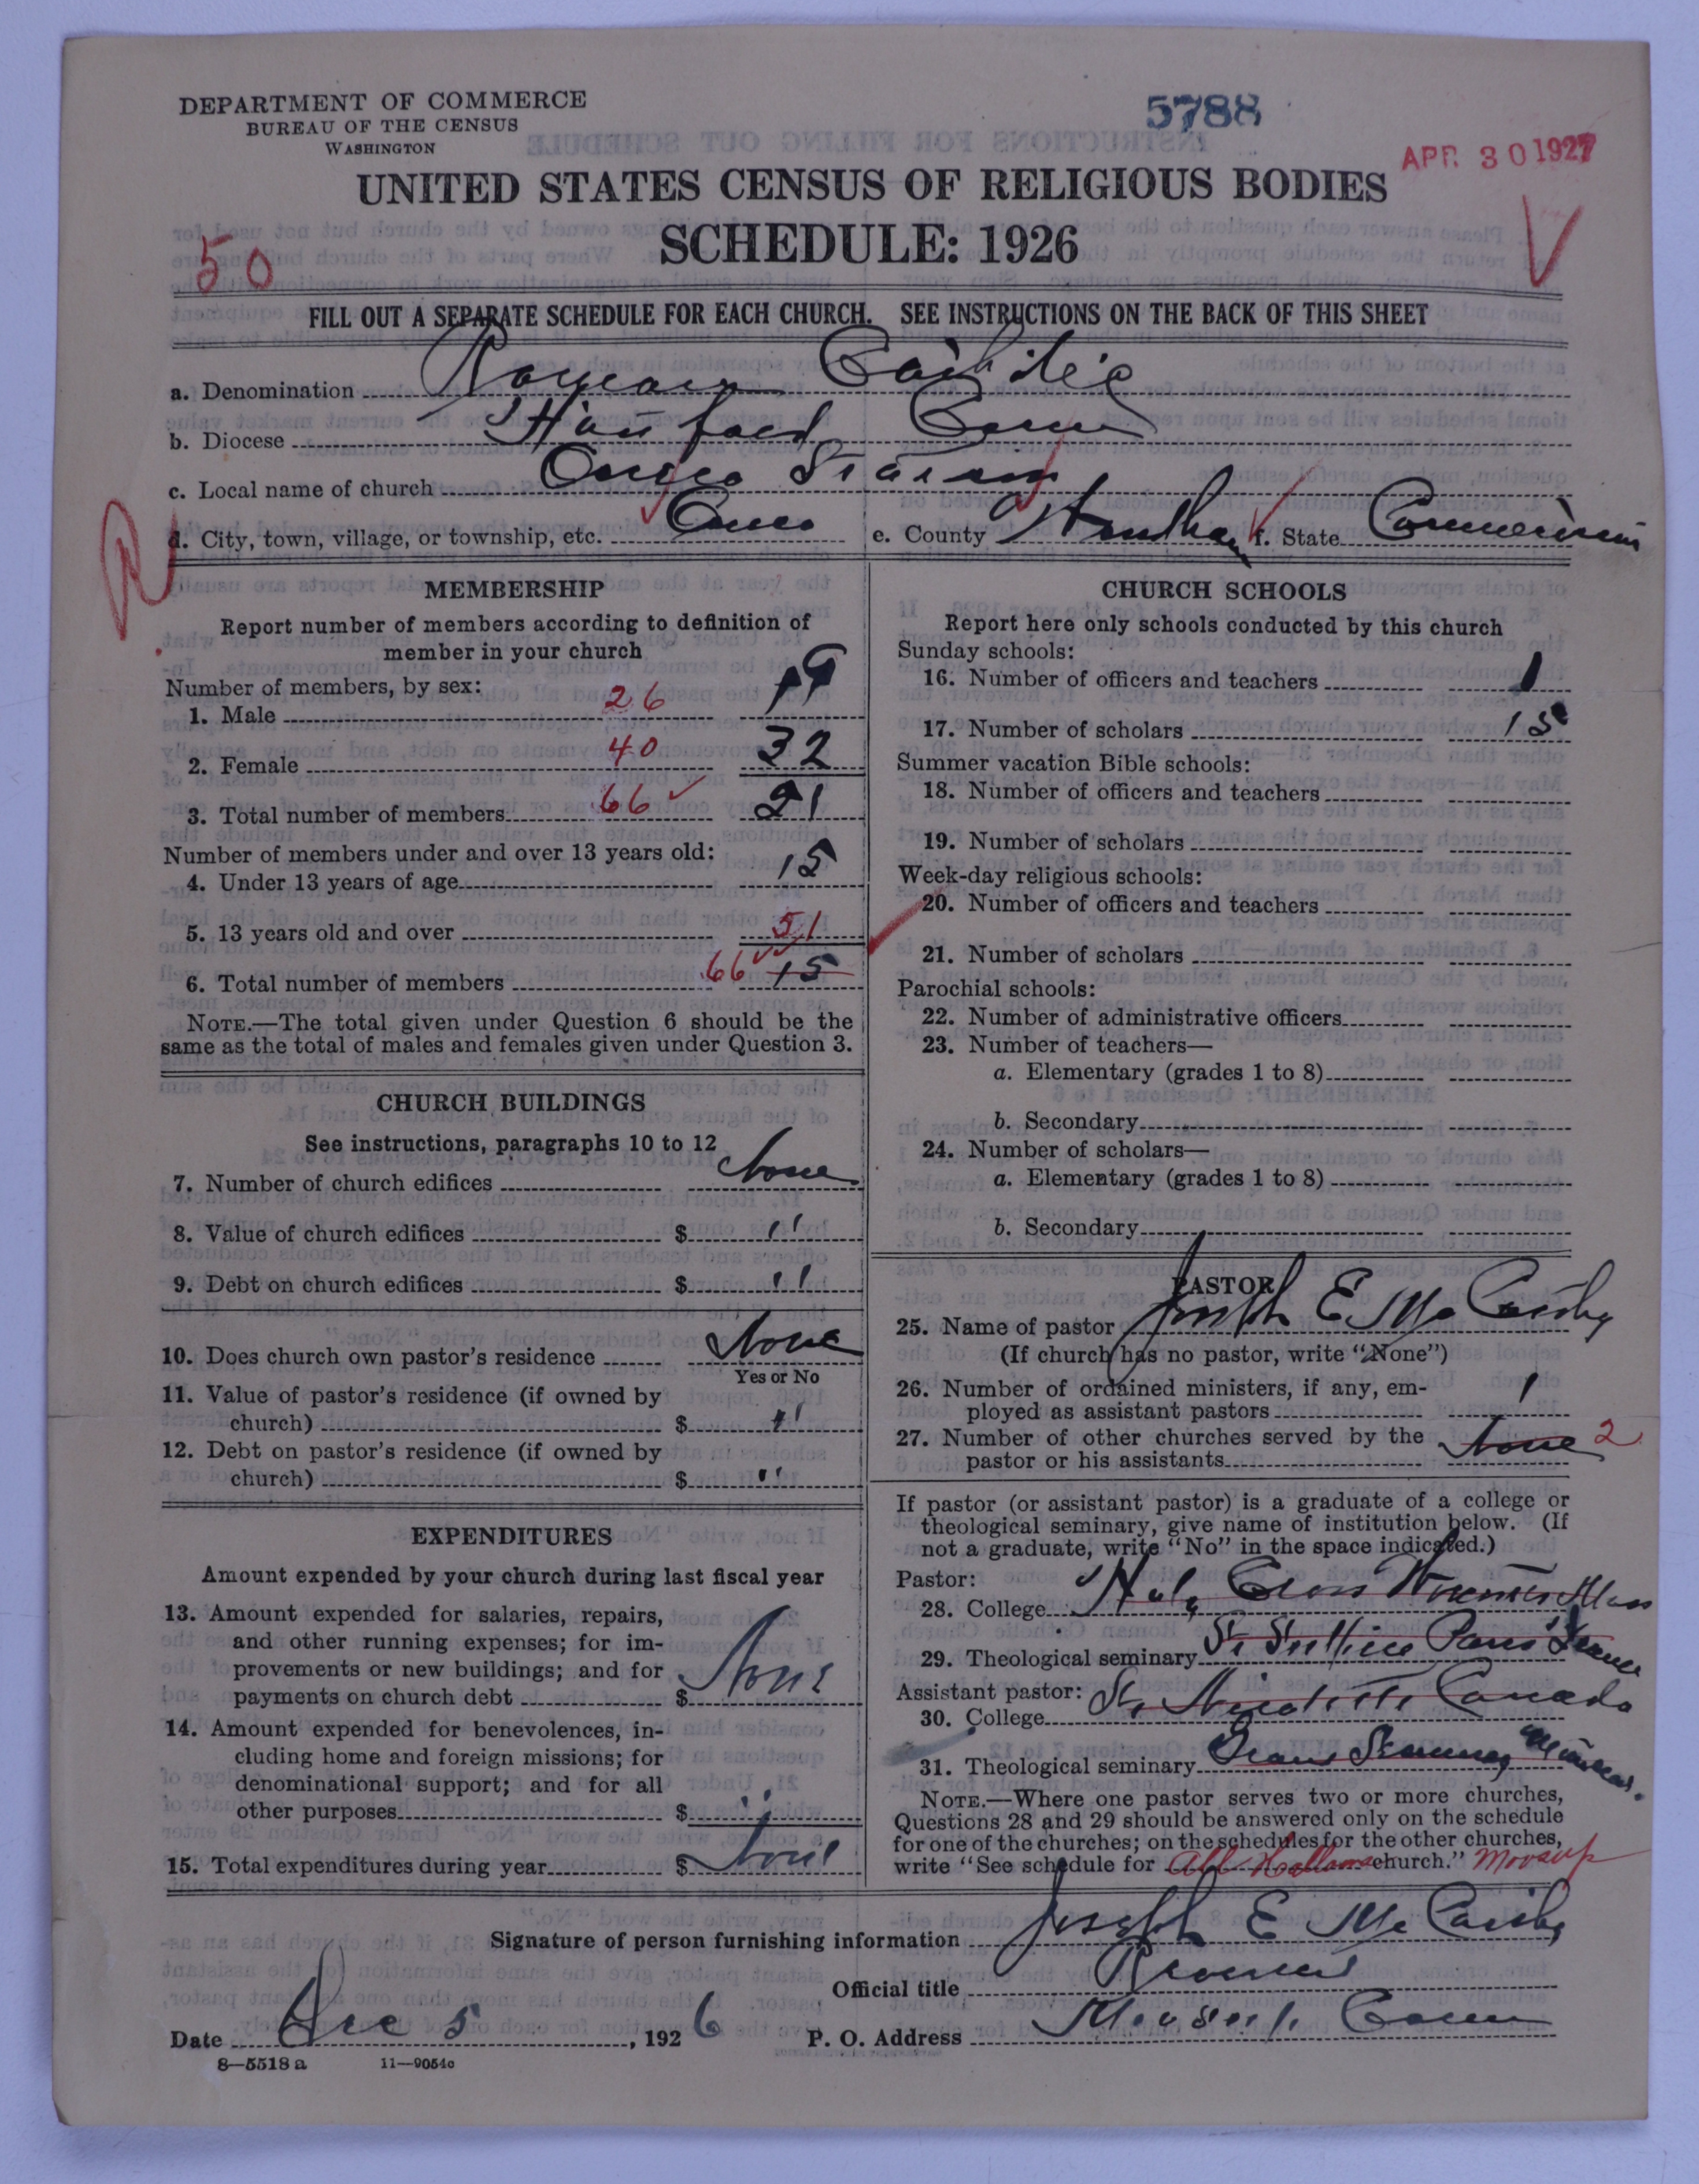 DEPARTMENT OF COMMERCE
BUREAU OF THE CENSUS
WASHINGTON
5788
APR 30 1927
UNITED STATES CENSUS OF RELIGIOUS BODIES
SCHEDULE: 1926
50
FILL OUT A SEPARATE SCHEDULE FOR EACH CHURCH. SEE INSTRUCTIONS ON THE BACK OF THIS SHEET
a. Denomination Roman Catholic
b. Diocese Hartford Conn
c. Local name of church Oneco Station
d. City, town, village, or township, etc. Oneco e. County Windham f. State Connecticut
MEMBERSHIP
Report number of members according to definition of
member in your church
Number of members, by sex:
1. Male 26 19
2. Female 40 32
3. Total number of members 66 51
Number of members under and over 13 years old:
4. Under 13 years of age 15
5. 13 years old and over 51
6. Total number of members 66 15
NOTE.—The total given under Question 6 should be the
same as the total of males and females given under Question 3.
CHURCH BUILDINGS
See instructions, paragraphs 10 to 12
7. Number of church edifices None
8. Value of church edifices $ "
9. Debt on church edifices $ "
10. Does church own pastor's residence None
Yes or No
11. Value of pastor's residence (if owned by
church) $ "
12. Debt on pastor's residence (if owned by
church) $ "
EXPENDITURES
Amount expended by your church during last fiscal year
13. Amount expended for salaries, repairs,
and other running expenses; for im-
provements or new buildings; and for
payments on church debt $ None
14. Amount expended for benevolences, in-
cluding home and foreign missions; for
denominational support; and for all
other purposes $ "
15. Total expenditures during year $ None
CHURCH SCHOOLS
Report here only schools conducted by this church
Sunday schools:
16. Number of officers and teachers 1
17. Number of scholars 15
Summer vacation Bible schools:
18. Number of officers and teachers
19. Number of scholars
Week-day religious schools:
20. Number of officers and teachers
21. Number of scholars
Parochial schools:
22. Number of administrative officers
23. Number of teachers—
a. Elementary (grades 1 to 8)
b. Secondary
24. Number of scholars—
a. Elementary (grades 1 to 8)
b. Secondary
PASTOR
25. Name of pastor Joseph E McCarthy
(If church has no pastor, write "None")
26. Number of ordained ministers, if any, em-
ployed as assistant pastors 1
27. Number of other churches served by the
pastor or his assistants None 2
If pastor (or assistant pastor) is a graduate of a college or
theological seminary, give name of institution below. (If
not a graduate, write "No" in the space indicated.)
Pastor:
28. College Holy Cross Worcester Mass
29. Theological seminary St Sulpice Paris France
Assistant pastor:
30. College St Canada
31. Theological seminary Grand Seminary Montreal.
NOTE.—Where one pastor serves two or more churches,
Questions 28 and 29 should be answered only on the schedule
for one of the churches; on the schedules for the other churches,
write "See schedule for All Hallows church." Moosup
Signature of person furnishing information Joseph E McCarthy
Official title
Date Dec 5, 1926 P. O. Address Moosup Conn
8—5518 a 11—9054c